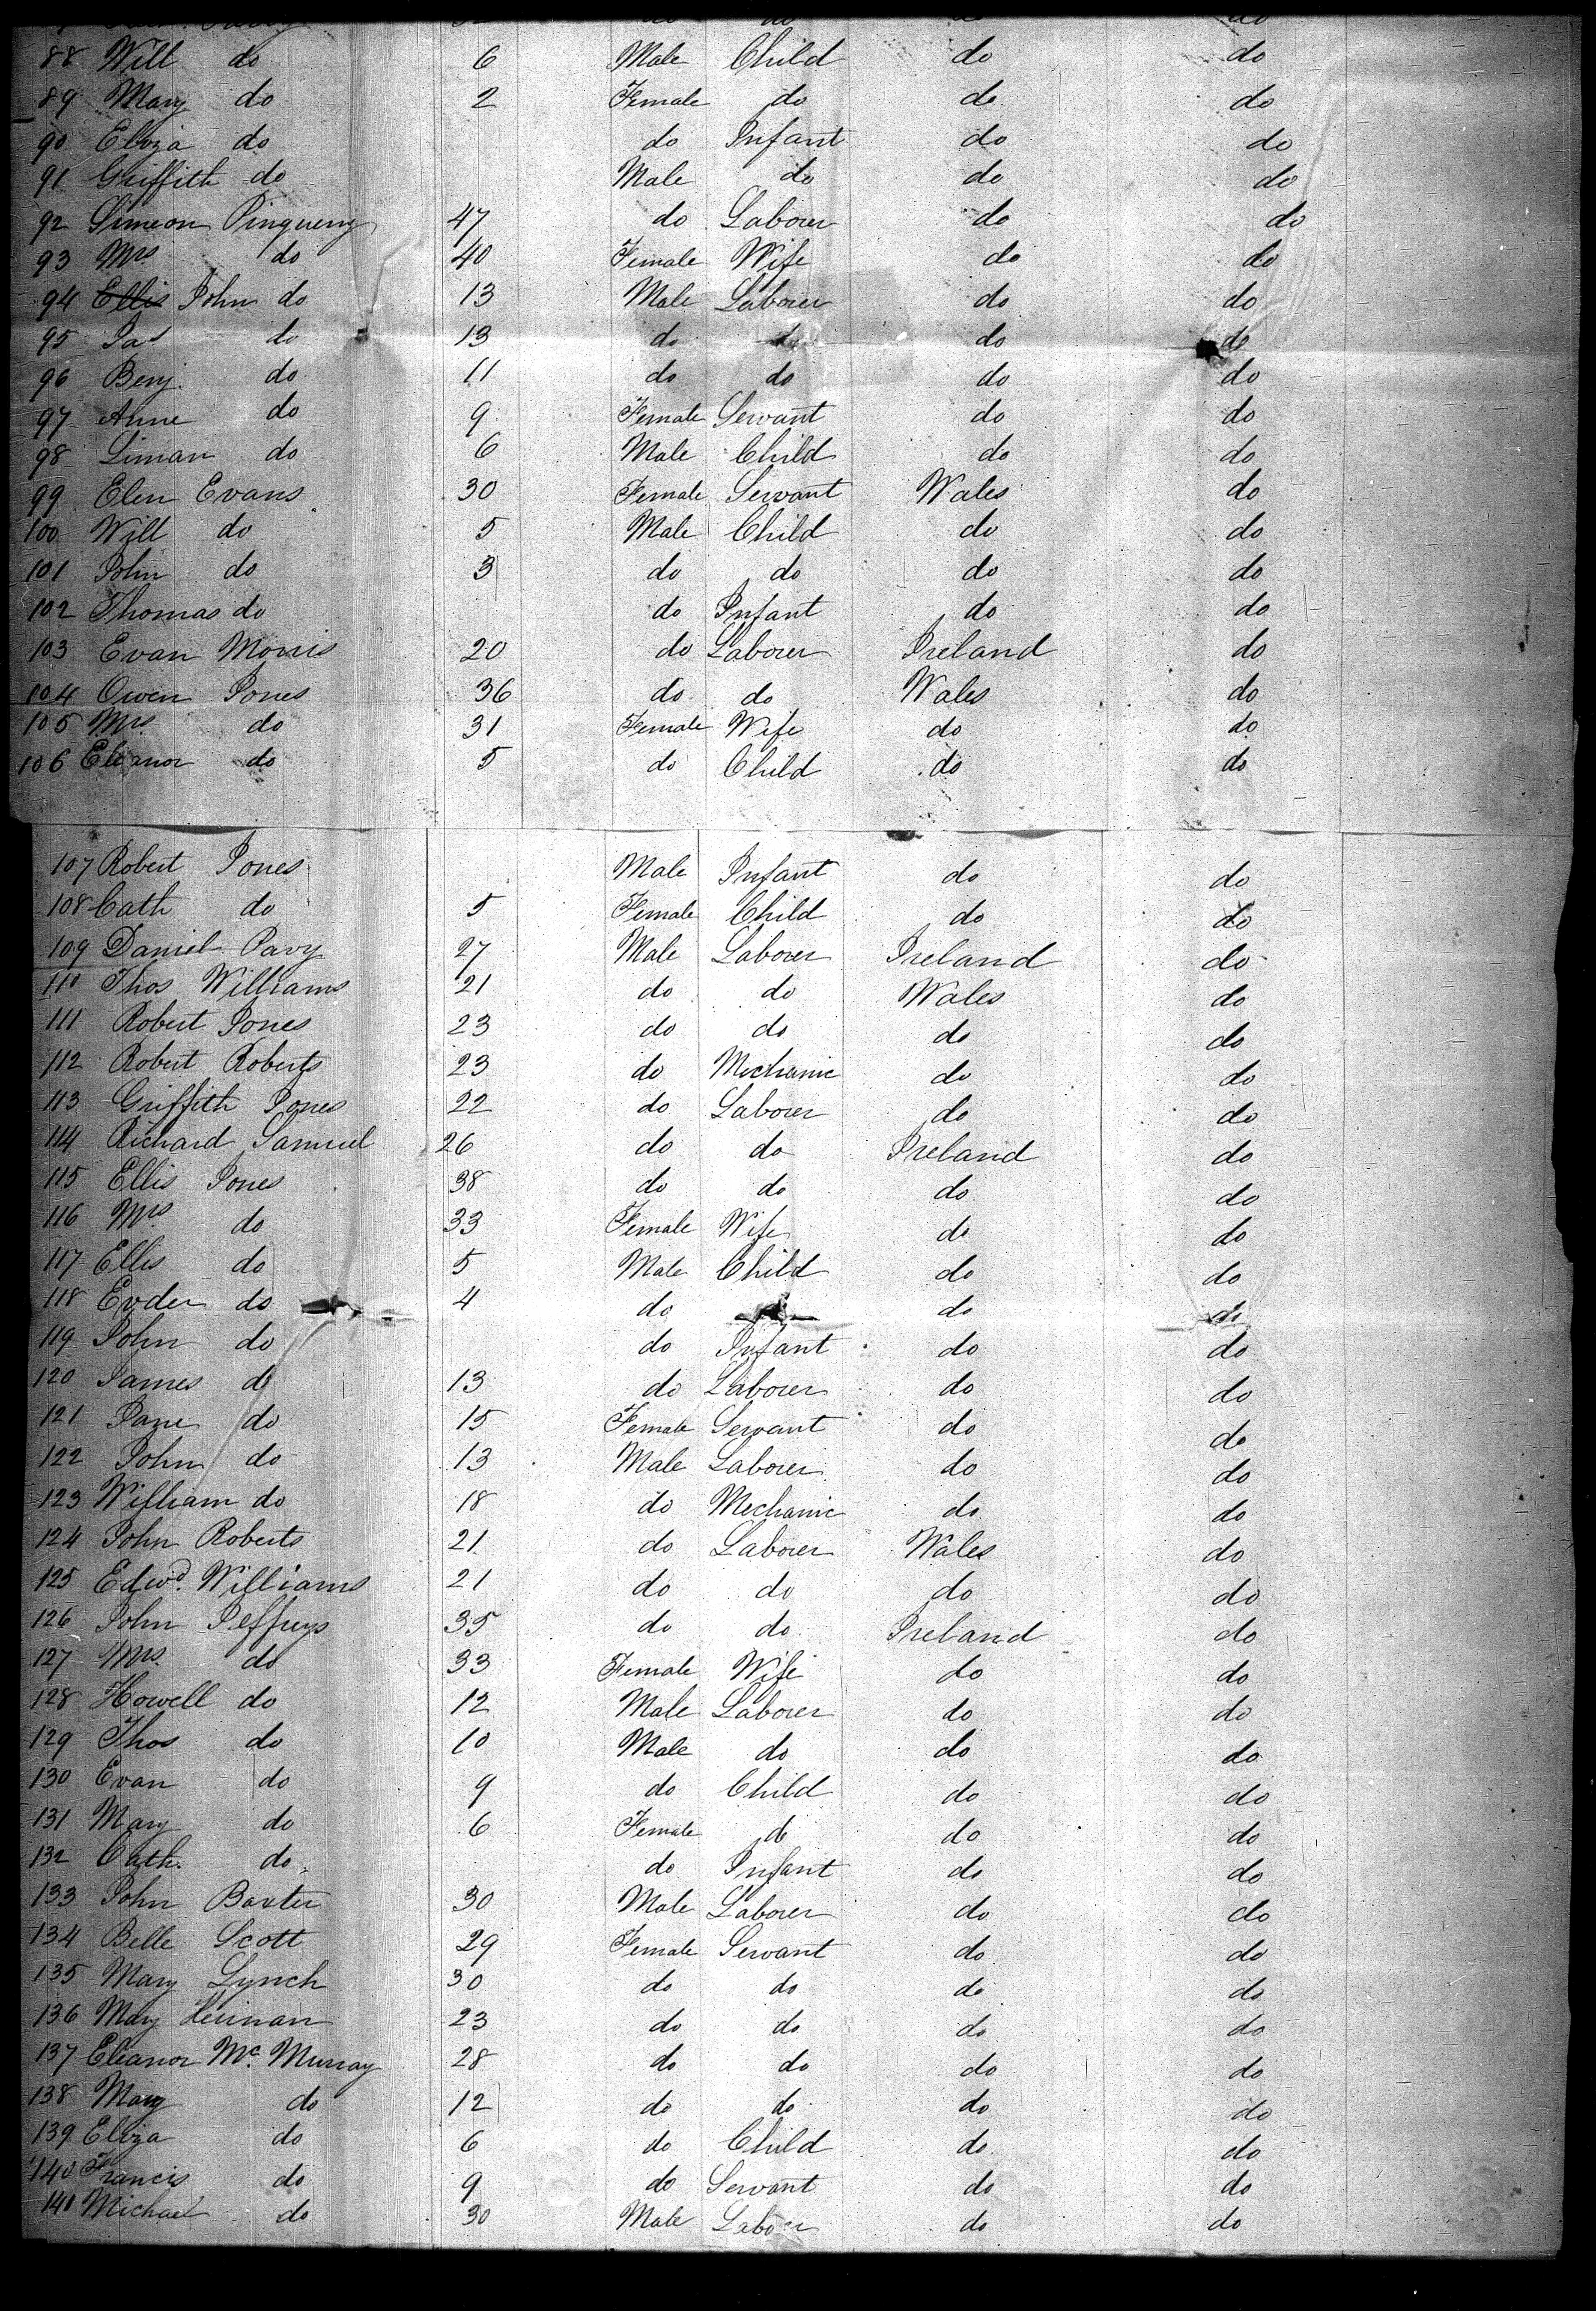 do do do do
88 Will do 6 Male Child do do
89 Mary do 2 Female do do do
90 Eliza do do Infant do do
91 Griffith do Male do do do
92 Simeon Pinqueny 47 do Laborer do do
93 Mrs do 40 Female Wife do do
94 Ellis John do 13 Male Laborer do do
95 Jas do 13 do do do do
96 Benj. do 11 do do do do
97 Anne do 9 Female Servant do do
98 Siman do 6 Male Child do do
99 Elen Evans 30 Female Servant Wales do
100 Will do 5 Male Child do do
101 John do 3 do do do do
102 Thomas do do Infant do do
103 Evan Morris 20 do Laborer Ireland do
104 Owen Jones 36 do do Wales do
105 Mrs. do 31 Female Wife do do
106 Eleanor do 5 do Child do do
107 Robert Jones Male Infant do do
108 Cath do 5 Female Child do do
109 Daniel Pavy 27 Male Laborer Ireland do
110 Thos Williams 21 do do Wales do
111 Robert Jones 23 do do do do
112 Robert Roberts 23 do Mechanic do do
113 Griffith Jones 22 do Laborer do do
114 Richard Samuel 26 do do Ireland do
115 Ellis Jones 38 do do do do
116 Mrs do 33 Female Wife do do
117 Ellis do 5 Male Child do do
118 Evder do 4 do do do
119 John do do Infant do do
120 James do 13 do Laborer do do
121 Jane do 15 Female Servant do do
122 John do 13 Male Laborer do do
123 William do 18 do Mechanic do do
124 John Roberts 21 do Laborer Wales do
125 Edwd. Williams 21 do do do do
126 John Jeffreys 35 do do Ireland do
127 Mrs. do 33 Female Wife do do
128 Howell do 12 Male Laborer do do
129 Thos do 10 Male do do do
130 Evan do 9 do Child do do
131 Mary do 6 Female do do do
132 Cath. do do Infant do do
133 John Baxter 30 Male Laborer do do
134 Belle Scott 29 Female Servant do do
135 Mary Lynch 30 do do do do
136 Mary Heiinan 23 do do do do
137 Eleanor Mc. Murray 28 do do do do
138 Mary do 12 do do do do
139 Eliza do 6 do Child do do
140 Francis do 9 do Servant do do
141 Michael do 30 Male Laborer do do